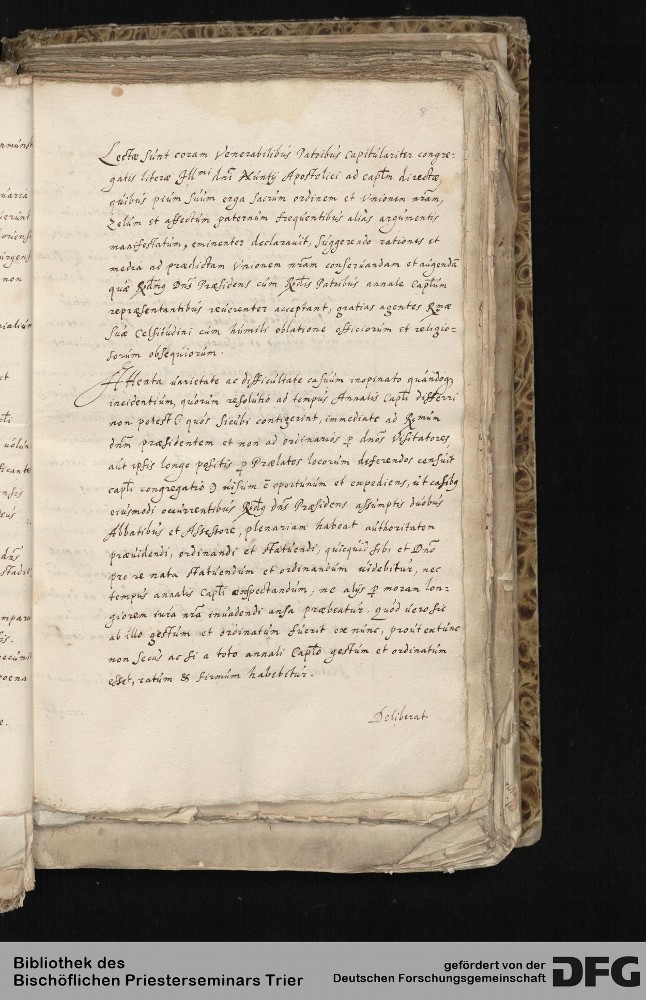 Lectæ sunt coram Venerabilibus Patribus Capitulariter congre-
gatis literæ Illmi dni Nuntij Apostolici ad captm directæ,
quibus pium suum erga sacrum ordinem et Unionem nram,
Zelum et affectum paternum frequentibus alias argumentis
manifestatum, eminenter declarauit, suggerendo rationes et
media ad prædictam Unionem nram conseruandam et augendã
quæ Rdus Dns Præsidens cum Rdis Patribus annale Captum
repræsentantibus reuerenter acceptant, gratias agentes Rmæ
Suæ Celsitudini cum humili oblatione officiorum et religio-
sorum obsequiorum.
Attenta uarietate ac difficultate casuum inopinato quandoq3
incidentium, quorum resolutio ad tempus Annalis Capli differri
non potest quos sicubi contigerint, immediate ad Rmum
dnm præsidentem et non ad ordinarios p dnos Visitatores,
aut ipsis longe positis p Prælatos locorum deferendos censuit
capli congregatio uisum ẽ oportunum et expediens, ut casibq
eiusmodi occurrentibus Rdus dns Præsidens assumptis duobus
Abbatibus et Assessore, plenariam habeat authoritatem
præuidendi, ordinandi et statuendi, quicquid sibi et Dno
pro re nata statuendum et ordinandum uidebitur, nec
tempus annalis Capli exspectandum, ne alijs p moram lon-
giorem iura nra inuadendi ansa præbeatur. Quod uero sic
ab illo gestum et ordinatum fuerit ex nunc, prout ex tunc
non secus ac si a toto annali Caplo gestum et ordinatum
esset, ratum & firmum habebitur.
Deliberat.
Bibliothek des
Bischöflichen Priesterseminars Trier
gefördert von der
Deutschen Forschungsgemeinschaft
DFG